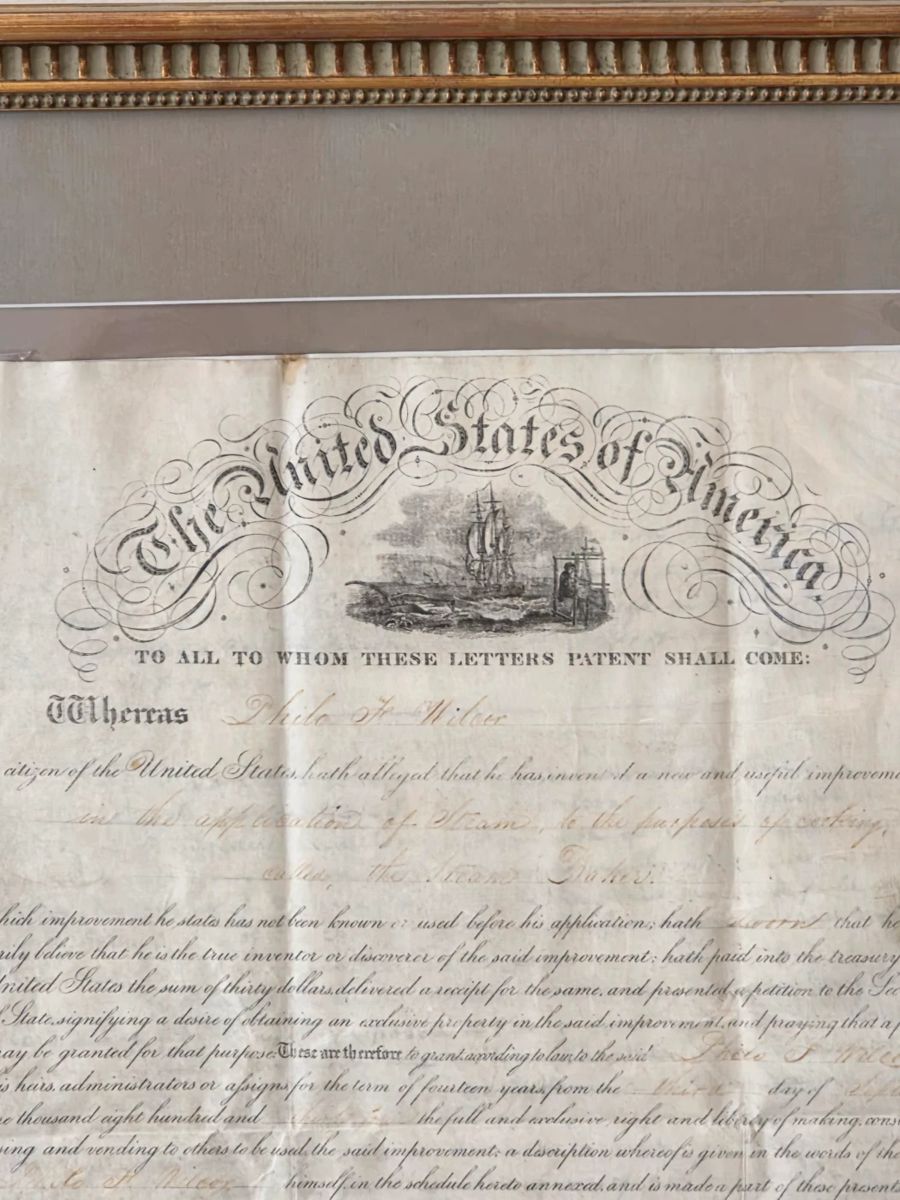 The United States of America,
TO ALL TO WHOM THESE LETTERS PATENT SHALL COME:
Whereas Philo F. Wilcox
citizen of the United States, hath alleged that he has invented a new and useful improvem
in the application of Steam, to the purposes of cooking,
called, the Steam Baker.
hich improvement he states has not been known or used before his application; hath sworn that he
rily believe that he is the true inventor or discoverer of the said improvement; hath paid into the treasury
nited States the sum of thirty dollars, delivered a receipt for the same, and presented a petition to the Sec
f State, signifying a desire of obtaining an exclusive property in the said improvement, and praying that a p
ay be granted for that purpose: These are therefore to grant, according to law, to the said Philo F Wilco
is heirs, administrators or assigns, for the term of fourteen years, from the day of
e thousand eight hundred and the full and exclusive right and liberty of making, cons
sing and vending to others to be used, the said improvement; a description whereof is given in the words of the
Philo F. Wilcox himself, in the schedule hereto annexed, and is made a part of these presents